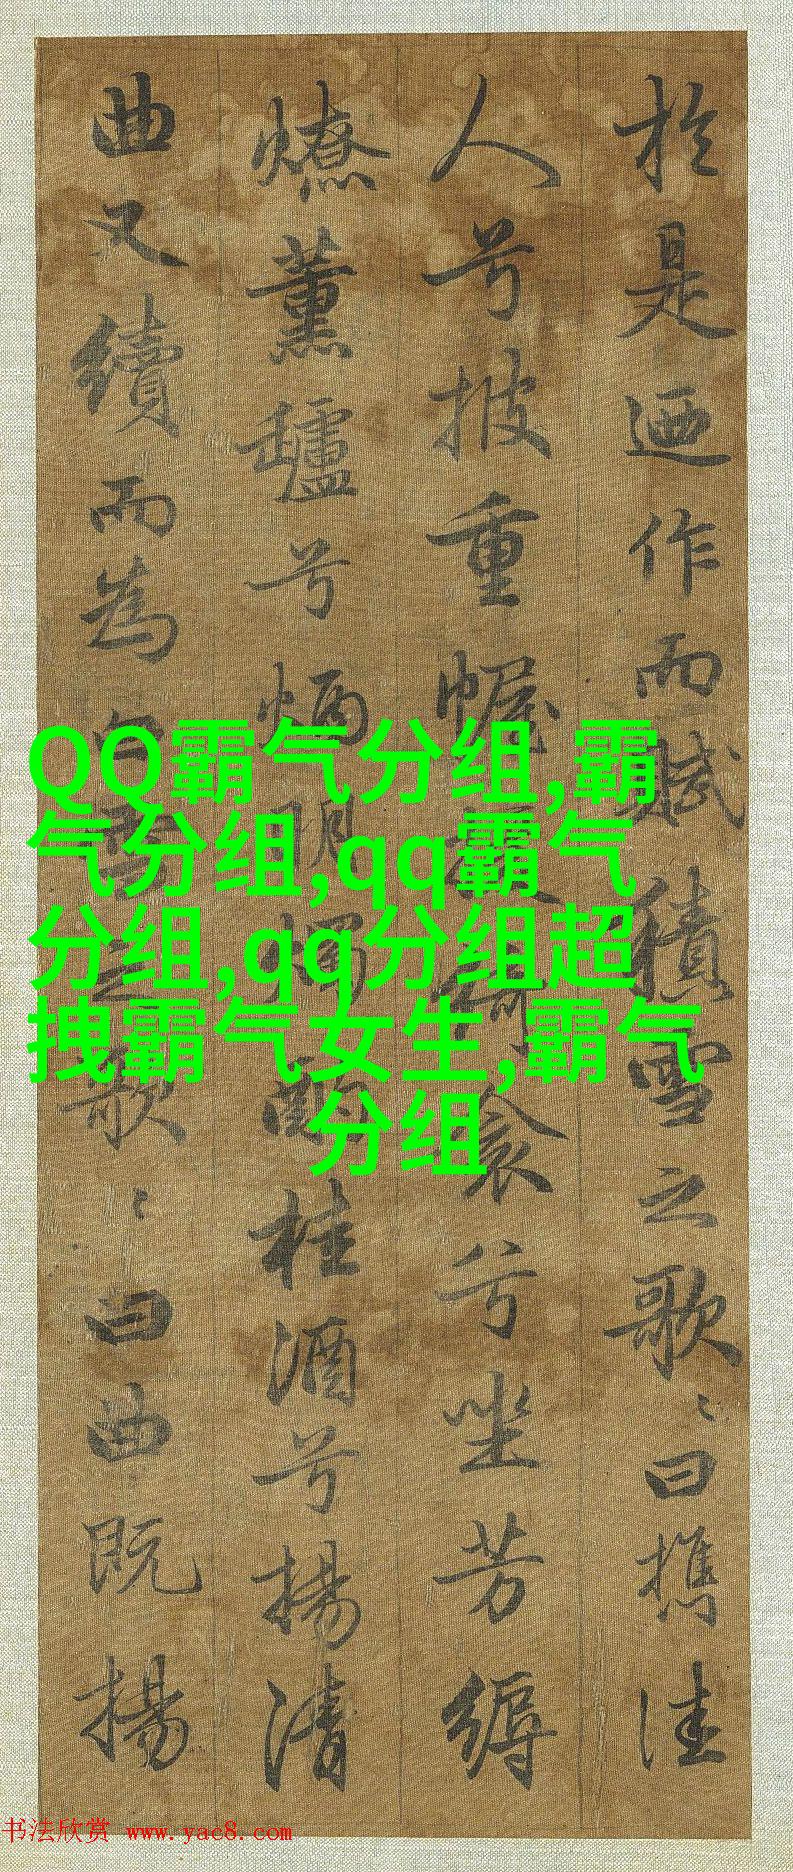 於是迺作而賦積雪之歌〻曰攜佳
人兮披重幄援綺衾兮坐芳縟
燎薰罏兮炳明燭酌桂酒兮揚清
曲又續而為白雪之歌〻曰曲既揚
QQ霸气分组,霸
气分组,qq霸气
分组,qq分组超
拽霸气女生,霸气
分组
书法欣赏 www.yac8.com